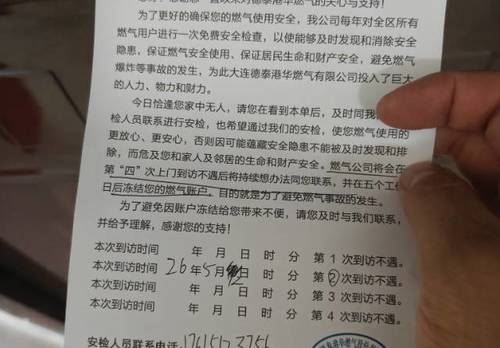 您好！感谢您一直以来对德泰港华燃气的关心与支持！
为了更好的确保您的燃气使用安全，我公司每年对全区所有
燃气用户进行一次免费安全检查，以使能够及时发现和消除安全
隐患，保证燃气安全使用、保证居民生命和财产安全，避免燃气
爆炸等事故的发生，为此大连德泰港华燃气有限公司投入了巨大
的人力、物力和财力。
今日恰逢您家中无人，请您在看到本单后，及时同我
检人员联系进行安检，也希望通过我们的安检，使您燃气使用的
更放心、更安心，否则因可能蕴藏安全隐患不能被及时发现和排
除，而危及您和家人及邻居的生命和财产安全。燃气公司将会在
第“四”次上门到访不遇后将持续想办法同您联系，并在五个工
日后冻结您的燃气账户。目的就是为了避免燃气事故的发生。
为了避免因账户冻结给您带来不便，请您及时与我们联系，
并给予理解，感谢您的支持！
本次到访时间 年 月 日 时 分 第 1 次到访不遇。
本次到访时间 26 年 5 月 日 时 分 第 2 次到访不遇。
本次到访时间 年 月 日 时 分 第 3 次到访不遇。
本次到访时间 年 月 日 时 分 第 4 次到访不遇。
安检人员联系电话：